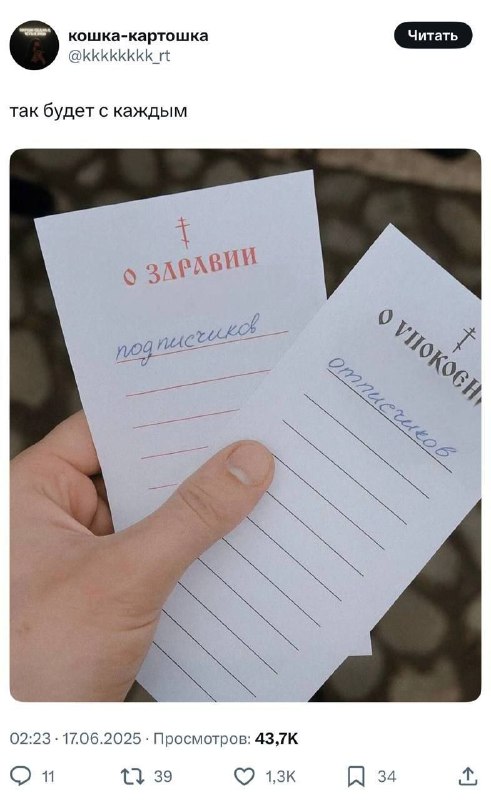 кошка-картошка
@kkkkkkkk_rt
Читать
так будет с каждым
О ЗДРАВИИ
подписчиков
О УПОКОЕНИ
отписчиков
02:23 · 17.06.2025 · Просмотров: 43,7K
11 39 1,3K 34